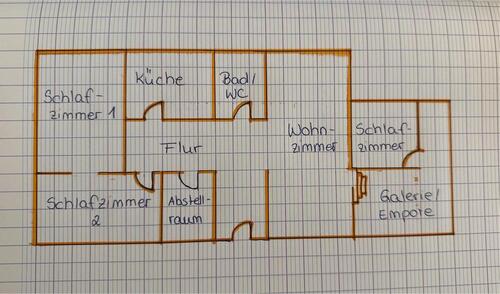 Schlaf-
zimmer 1
Küche
Bad/
WC
Flur
Wohn-
zimmer
Schlaf-
zimmer
Schlafzimmer
2
Abstell-
raum
Galerie/
Empore